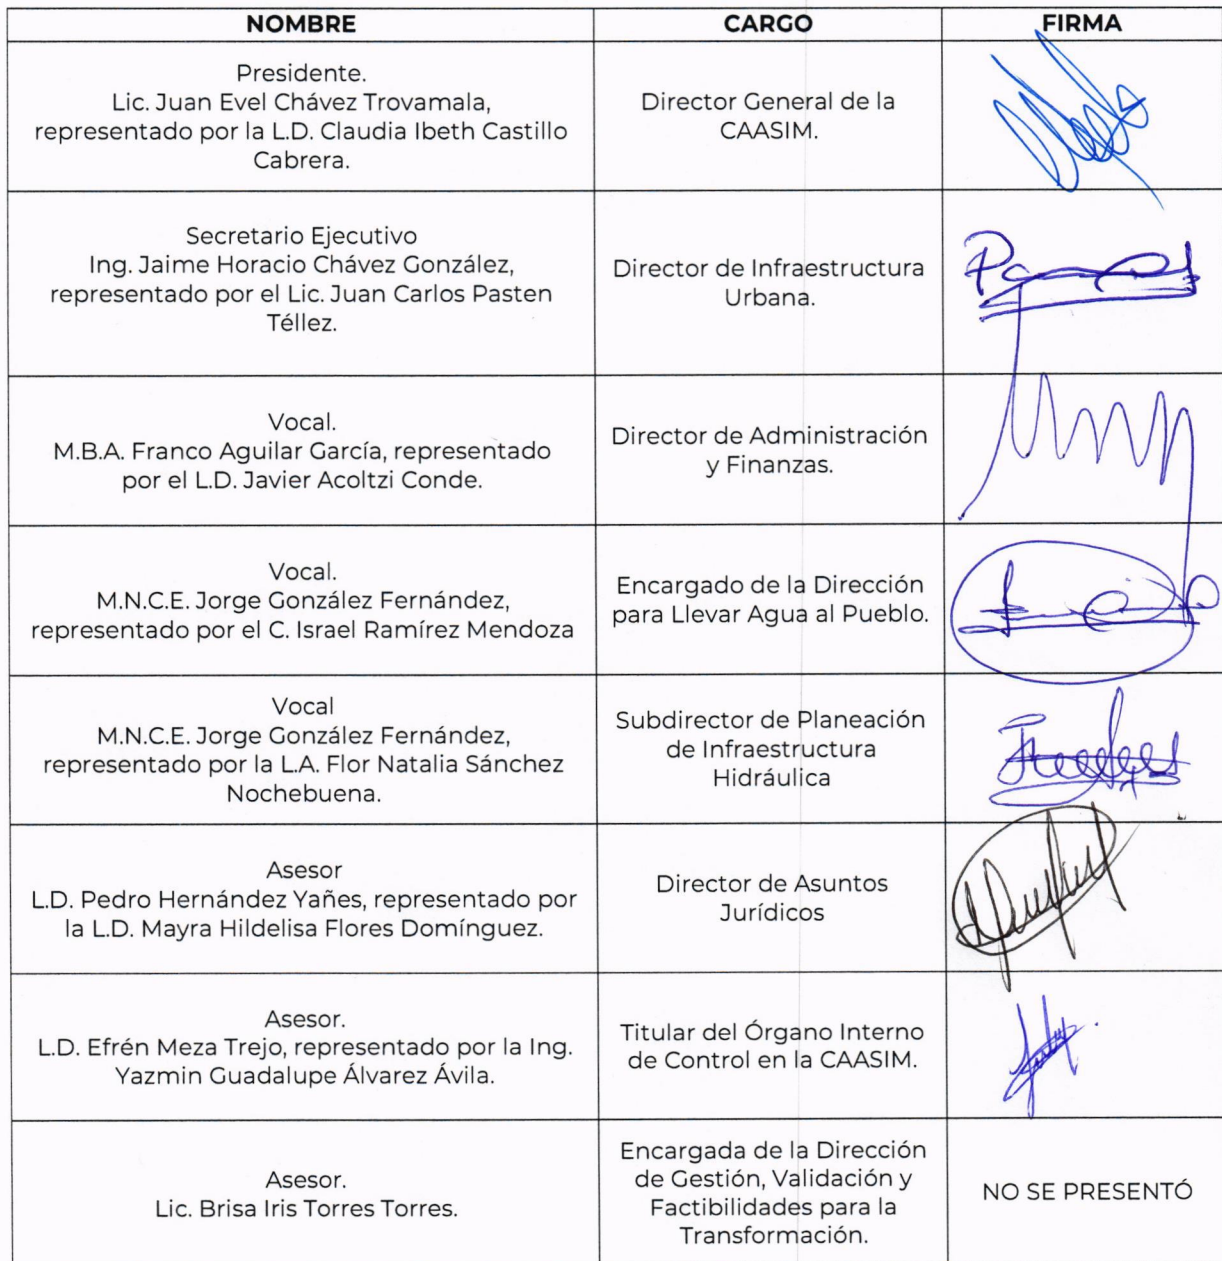 NOMBRE CARGO FIRMA
Presidente.
Lic. Juan Evel Chávez Trovamala,
representado por la L.D. Claudia Ibeth Castillo
Cabrera.
Director General de la
CAASIM.
Secretario Ejecutivo
Ing. Jaime Horacio Chávez González,
representado por el Lic. Juan Carlos Pasten
Téllez.
Director de Infraestructura
Urbana.
Vocal.
M.B.A. Franco Aguilar García, representado
por el L.D. Javier Acoltzi Conde.
Director de Administración
y Finanzas.
Vocal.
M.N.C.E. Jorge González Fernández,
representado por el C. Israel Ramírez Mendoza
Encargado de la Dirección
para Llevar Agua al Pueblo.
Vocal
M.N.C.E. Jorge González Fernández,
representado por la L.A. Flor Natalia Sánchez
Nochebuena.
Subdirector de Planeación
de Infraestructura
Hidráulica
Asesor
L.D. Pedro Hernández Yañes, representado por
la L.D. Mayra Hildelisa Flores Domínguez.
Director de Asuntos
Jurídicos
Asesor.
L.D. Efrén Meza Trejo, representado por la Ing.
Yazmin Guadalupe Álvarez Ávila.
Titular del Órgano Interno
de Control en la CAASIM.
Asesor.
Lic. Brisa Iris Torres Torres.
Encargada de la Dirección
de Gestión, Validación y
Factibilidades para la
Transformación.
NO SE PRESENTÓ